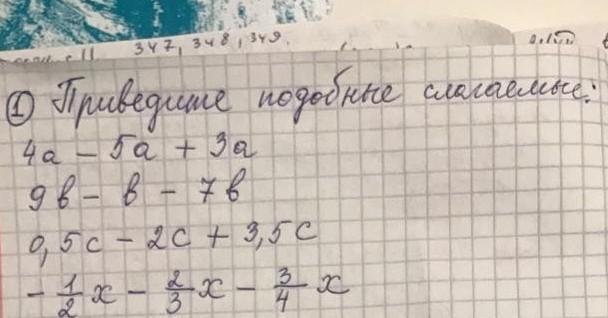 347, 348, 349.
① Приведите подобные слагаемые:
4a - 5a + 3a
9в - в - 7в
0,5с - 2с + 3,5с
- 1/2 x - 2/3 x - 3/4 x